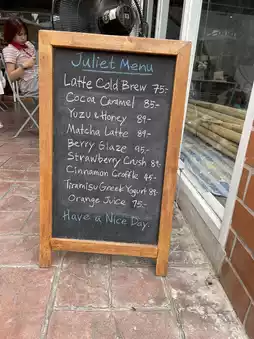 Juliet Menu
Latte Cold Brew 75-
Cocoa Caramel 85-
Yuzu & Honey 89-
Matcha Latte 89-
Berry Glaze 95-
Strawberry Crush 89-
Cinnamon Croffle 45-
Tiramisu Greek Yogurt 89-
Orange Juice 75-
Have a Nice Day